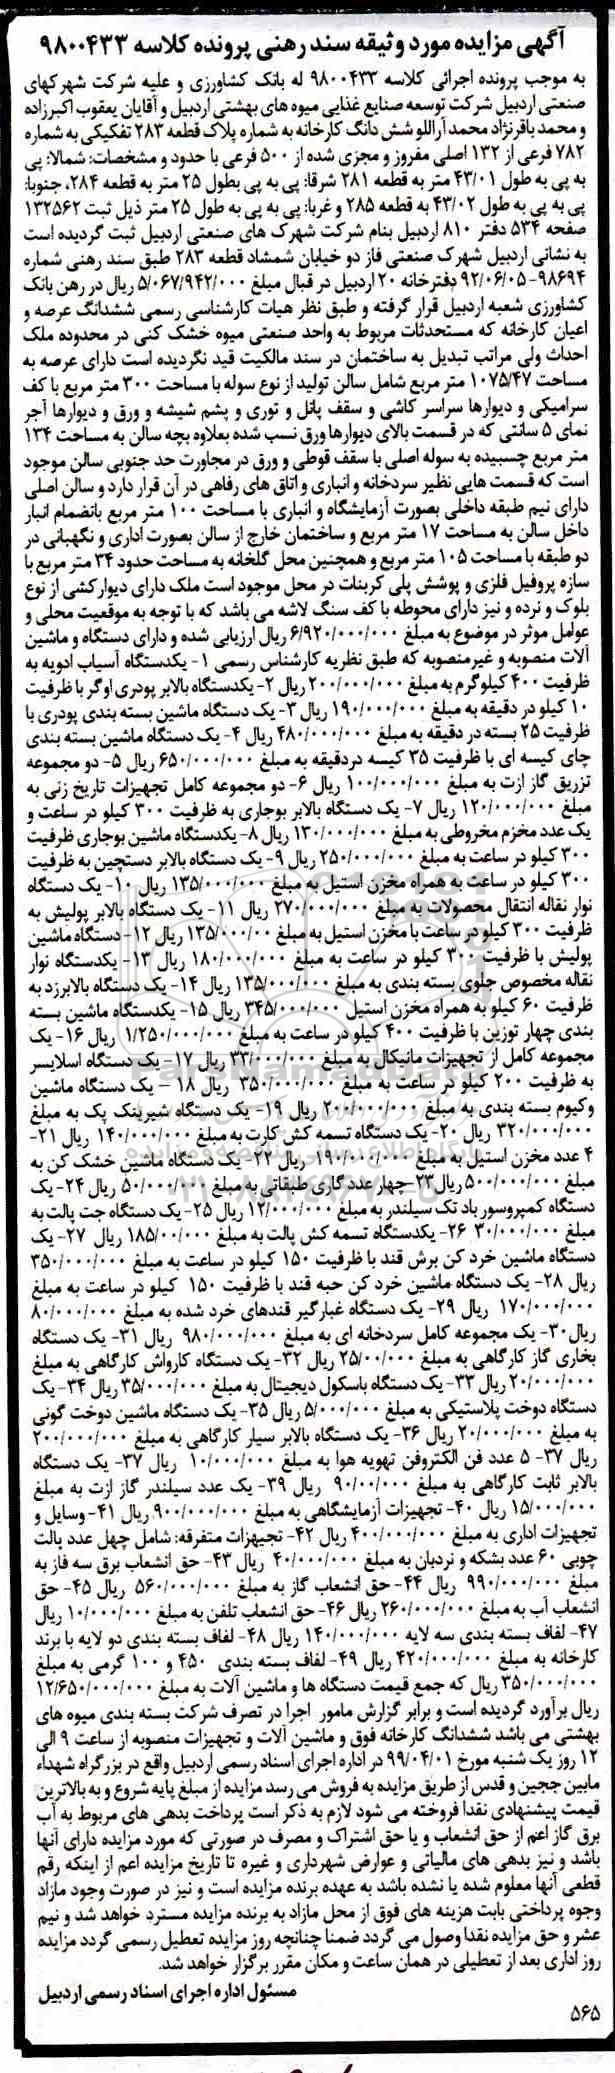 آگهی مزایده مورد وثیقه سند رهنی پرونده کلاسه ۹۸۰۰۴۳۳
به موجب پرونده اجرائی کلاسه ۹۸۰۰۴۳۳ له بانک کشاورزی و علیه شرکت شهرکهای
صنعتی اردبیل شرکت توسعه صنایع غذایی میوه های بهشتی اردبیل و آقایان یعقوب اکبرزاده
و محمد باقرنژاد محمد آراللو شش دانگ کارخانه به شماره پلاک قطعه ۲۸۳ تفکیکی به شماره
۷۸۲ فرعی از ۱۳۲ اصلی مفروز و مجزی شده از ۵۰۰ فرعی با حدود و مشخصات: شمالا: پی
به پی به طول ۴۳/۰۱ متر به قطعه ۲۸۱ شرقا: پی به پی بطول ۲۵ متر به قطعه ۲۸۴، جنوبا:
پی به پی به طول ۴۳/۰۲ به قطعه ۲۸۵ و غربا: پی به پی به طول ۲۵ متر ذیل ثبت ۱۳۲۵۶۲
صفحه ۵۳۴ دفتر ۸۱۰ اردبیل بنام شرکت شهرک های صنعتی اردبیل ثبت گردیده است
به نشانی اردبیل شهرک صنعتی فاز دو خیابان شمشاد قطعه ۲۸۳ طبق سند رهنی شماره
۹۸۶۹۴-۹۲/۰۶/۰۵ دفترخانه ۲۰ اردبیل در قبال مبلغ ۵/۰۶۷/۹۴۲/۰۰۰ ریال در رهن بانک
کشاورزی شعبه اردبیل قرار گرفته و طبق نظر هیات کارشناسی رسمی ششدانگ عرصه و
اعیان کارخانه که مستحدثات مربوط به واحد صنعتی میوه خشک کنی در محدوده ملک
احداث ولی مراتب تبدیل به ساختمان در سند مالکیت قید نگردیده است دارای عرصه به
مساحت ۱۰۷۵/۴۷ متر مربع شامل سالن تولید از نوع سوله با مساحت ۳۰۰ متر مربع با کف
سرامیکی و دیوارها سراسر کاشی و سقف پانل و توری و پشم شیشه و ورق و دیوارها آجر
نمای ۵ سانتی که در قسمت بالای دیوارها ورق نسب شده بعلاوه بچه سالن به مساحت ۱۳۴
متر مربع چسبیده به سوله اصلی با سقف قوطی و ورق در مجاورت حد جنوبی سالن موجود
است که قسمت هایی نظیر سردخانه و انباری و اتاق های رفاهی در آن قرار دارد و سالن اصلی
دارای نیم طبقه داخلی بصورت آزمایشگاه و انباری با مساحت ۱۰۰ متر مربع بانضمام انبار
داخل سالن به مساحت ۱۷ متر مربع و ساختمان خارج از سالن بصورت اداری و نگهبانی در
دو طبقه با مساحت ۱۰۵ متر مربع و همچنین محل گلخانه به مساحت حدود ۳۴ متر مربع با
سازه پروفیل فلزی و پوشش پلی کربنات در محل موجود است ملک دارای دیوارکشی از نوع
بلوک و نرده و نیز دارای محوطه با کف سنگ لاشه می باشد که با توجه به موقعیت محلی و
عوامل موثر در موضوع به مبلغ ۶/۹۲۰/۰۰۰/۰۰۰ ریال ارزیابی شده و دارای دستگاه و ماشین
آلات منصوبه و غیر منصوبه که طبق نظریه کارشناس رسمی ۱- یکدستگاه آسیاب ادویه به
ظرفیت ۴۰۰ کیلوگرم به مبلغ ۲۰۰/۰۰۰/۰۰۰ ریال ۲- یکدستگاه بالابر پودری اوگر با ظرفیت
۱۰ کیلو در دقیقه به مبلغ ۱۹۰/۰۰۰/۰۰۰ ریال ۳- یک دستگاه ماشین بسته بندی پودری با
ظرفیت ۲۵ بسته در دقیقه به مبلغ ۴۸۰/۰۰۰/۰۰۰ ریال ۴- یک دستگاه ماشین بسته بندی
چای کیسه ای با ظرفیت ۳۵ کیسه دردقیقه به مبلغ ۶۵۰/۰۰۰/۰۰۰ ریال ۵- دو مجموعه
تزریق گاز ازت به مبلغ ۱۰۰/۰۰۰/۰۰۰ ریال ۶- دو مجموعه کامل تجهیزات تاریخ زنی به
مبلغ ۱۲۰/۰۰۰/۰۰۰ ریال ۷- یک دستگاه بالابر بوجاری به ظرفیت ۳۰۰ کیلو در ساعت و
یک عدد مخزم مخروطی به مبلغ ۱۳۰/۰۰۰/۰۰۰ ریال ۸- یکدستگاه ماشین بوجاری ظرفیت
۳۰۰ کیلو در ساعت به مبلغ ۲۵۰/۰۰۰/۰۰۰ ریال ۹- یک دستگاه بالابر دستچین به ظرفیت
۳۰۰ کیلو در ساعت به همراه مخزن استیل به مبلغ ۱۳۵/۰۰۰/۰۰۰ ریال ۱۰- یک دستگاه
نوار نقاله انتقال محصولات به مبلغ ۲۷۰/۰۰۰/۰۰۰ ریال ۱۱- یک دستگاه بالابر پولیش به
ظرفیت ۳۰۰ کیلو در ساعت با مخزن استیل به مبلغ ۱۳۵/۰۰۰/۰۰ ریال ۱۲- دستگاه ماشین
پولیش با ظرفیت ۳۰۰ کیلو در ساعت به مبلغ ۱۸۰/۰۰۰/۰۰۰ ریال ۱۳- یکدستگاه نوار
نقاله مخصوص جلوی بسته بندی به مبلغ ۱۳۵/۰۰۰/۰۰۰ ریال ۱۴- یک دستگاه بالابر زد به
ظرفیت ۶۰ کیلو به همراه مخزن استیل ۳۴۵/۰۰۰/۰۰۰ ریال ۱۵- یکدستگاه ماشین بسته
بندی چهار توزین با ظرفیت ۴۰۰ کیلو در ساعت به مبلغ ۱/۲۵۰/۰۰۰/۰۰۰ ریال ۱۶- یک
مجموعه کامل از تجهیزات مانیکال به مبلغ ۳۳/۰۰۰/۰۰۰ ریال ۱۷- یک دستگاه اسلایسر
به ظرفیت ۲۰۰ کیلو در ساعت به مبلغ ۳۵۰/۰۰۰/۰۰۰ ریال ۱۸- یک دستگاه ماشین
وکیوم بسته بندی به مبلغ ۲۰۰/۰۰۰/۰۰۰ ریال ۱۹- یک دستگاه شیرینک پک به مبلغ
۳۲۰/۰۰۰/۰۰۰ ریال ۲۰- یک دستگاه تسمه کش کارت به مبلغ ۱۴۰/۰۰۰/۰۰۰ ریال ۲۱-
۴ عدد مخزن استیل به مبلغ ۱۹۰/۰۰۰/۰۰۰ ریال ۲۲- یک دستگاه ماشین خشک کن به
مبلغ ۵۰۰/۰۰۰/۰۰۰ ریال۲۳- چهار عدد گاری طبقاتی به مبلغ ۵۰/۰۰۰/۰۰۰ ریال ۲۴- یک
دستگاه کمپروسور باد تک سیلندر به مبلغ ۱۲/۰۰۰/۰۰۰ ریال ۲۵- یک دستگاه جت پالت به
مبلغ ۳۰/۰۰۰/۰۰۰ ۲۶- یکدستگاه تسمه کش پالت به مبلغ ۱۸۵/۰۰/۰۰۰ ریال ۲۷- یک
دستگاه ماشین خرد کن برش قند با ظرفیت ۱۵۰ کیلو در ساعت به مبلغ ۳۵۰/۰۰۰/۰۰۰
ریال ۲۸- یک دستگاه ماشین خرد کن حبه قند با ظرفیت ۱۵۰ کیلو در ساعت به مبلغ
۱۷۰/۰۰۰/۰۰۰ ریال ۲۹- یک دستگاه غبارگیر قندهای خرد شده به مبلغ ۸۰/۰۰۰/۰۰۰
ریال۳۰- یک مجموعه کامل سردخانه ای به مبلغ ۹۸۰/۰۰۰/۰۰۰ ریال ۳۱- یک دستگاه
بخاری گاز کارگاهی به مبلغ ۲۵/۰۰/۰۰۰ ریال ۳۲- یک دستگاه کارواش کارگاهی به مبلغ
۲۰/۰۰۰/۰۰۰ ریال ۳۳- یک دستگاه باسکول دیجیتال به مبلغ ۳۵/۰۰۰/۰۰۰ ریال ۳۴- یک
دستگاه دوخت پلاستیکی به مبلغ ۵/۰۰۰/۰۰۰ ریال ۳۵- یک دستگاه ماشین دوخت گونی
به مبلغ ۲۰/۰۰۰/۰۰۰ ریال ۳۶- یک دستگاه بالابر سیار کارگاهی به مبلغ ۲۰۰/۰۰۰/۰۰۰
ریال ۳۷- ۵ عدد فن الکتروفن تهویه هوا به مبلغ ۱۰/۰۰۰/۰۰۰ ریال ۳۷- یک دستگاه
بالابر ثابت کارگاهی به مبلغ ۹۰/۰۰/۰۰۰ ریال ۳۹- یک عدد سیلندر گاز ازت به مبلغ
۱۵/۰۰۰/۰۰۰ ریال ۴۰- تجهیزات آزمایشگاهی به مبلغ ۹۰۰/۰۰۰/۰۰۰ ریال ۴۱- وسایل و
تجهیزات اداری به مبلغ ۴۰۰/۰۰۰/۰۰۰ ریال ۴۲- تجهیزات متفرقه: شامل چهل عدد پالت
چوبی ۶۰ عدد بشکه و نردبان به مبلغ ۴۰/۰۰۰/۰۰۰ ریال ۴۳- حق انشعاب برق سه فاز به
مبلغ ۹۹۰/۰۰۰/۰۰۰ ریال ۴۴- حق انشعاب گاز به مبلغ ۵۶۰/۰۰۰/۰۰۰ ریال ۴۵- حق
انشعاب آب به مبلغ ۲۶۰/۰۰۰/۰۰۰ ریال ۴۶- حق انشعاب تلفن به مبلغ ۱۰/۰۰۰/۰۰۰ ریال
۴۷- لفاف بسته بندی سه لایه ۱۴۰/۰۰۰/۰۰۰ ریال ۴۸- لفاف بسته بندی دو لایه با برند
کارخانه به مبلغ ۴۲۰/۰۰۰/۰۰۰ ریال ۴۹- لفاف بسته بندی ۴۵۰ و ۱۰۰ گرمی به مبلغ
۳۵۰/۰۰۰/۰۰۰ ریال که جمع قیمت دستگاه ها و ماشین آلات به مبلغ ۱۲/۶۵۰/۰۰۰/۰۰۰
ریال برآورد گردیده است و برابر گزارش مامور اجرا در تصرف شرکت بسته بندی میوه های
بهشتی می باشد ششدانگ کارخانه فوق و ماشین آلات و تجهیزات منصوبه از ساعت ۹ الی
۱۲ روز یک شنبه مورخ ۹۹/۰۴/۰۱ در اداره اجرای اسناد رسمی اردبیل واقع در بزرگراه شهداء
مابین ججین و قدس از طریق مزایده به فروش می رسد مزایده از مبلغ پایه شروع و به بالاترین
قیمت پیشنهادی نقدا فروخته می شود لازم به ذکر است پرداخت بدهی های مربوط به آب
برق گاز اعم از حق انشعاب و یا حق اشتراک و مصرف در صورتی که مورد مزایده دارای آنها
باشد و نیز بدهی های مالیاتی و عوارض شهرداری و غیره تا تاریخ مزایده اعم از اینکه رقم
قطعی آنها معلوم شده یا نشده باشد به عهده برنده مزایده است و نیز در صورت وجود مازاد
وجوه پرداختی بابت هزینه های فوق از محل مازاد به برنده مزایده مسترد خواهد شد و نیم
عشر و حق مزایده نقدا وصول می گردد ضمنا چنانچه روز مزایده تعطیل رسمی گردد مزایده
روز اداری بعد از تعطیلی در همان ساعت و مکان مقرر برگزار خواهد شد.
مسئول اداره اجرای اسناد رسمی اردبیل
۵۶۵